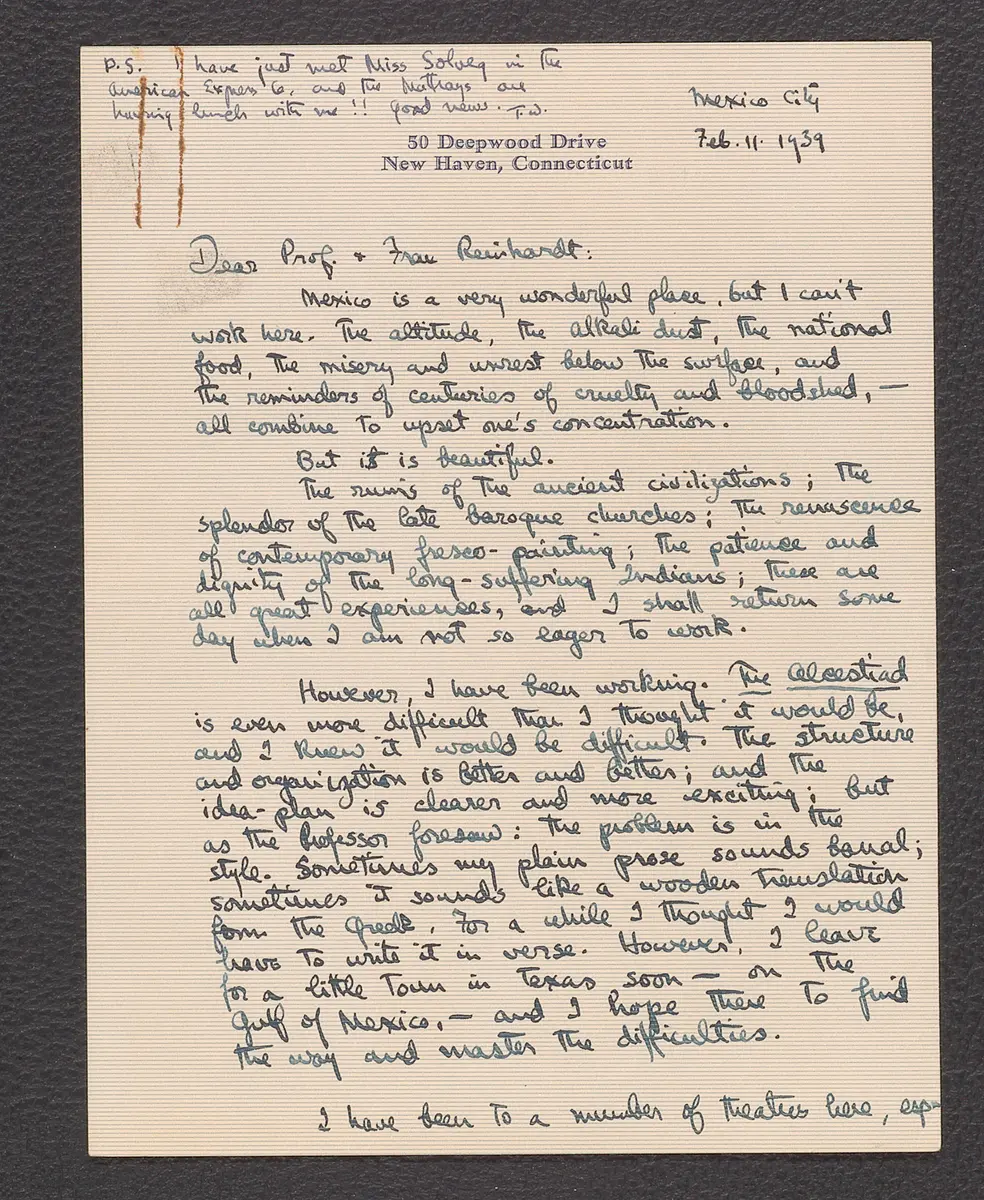 P.S. I have just met Miss Solveg in the
American Express Co, and the Mathays are
having lunch with me!! Good news. T.W.
Mexico City
Feb. 11. 1939
50 Deepwood Drive
New Haven, Connecticut
Dear Prof. + Frau Reinhardt:
Mexico is a very wonderful place, but I can't
work here. The altitude, the alkali dust, the national
food, the misery and unrest below the surface, and
the reminders of centuries of cruelty and bloodshed, —
all combine to upset one's concentration.
But it is beautiful.
The ruins of the ancient civilizations; the
splendor of the late baroque churches; the renascence
of contemporary fresco-painting; the patience and
dignity of the long-suffering Indians; these are
all great experiences, and I shall return some
day when I am not so eager to work.
However, I have been working. The Alcestiad
is even more difficult than I thought it would be,
and I knew it would be difficult. The structure
and organization is better and better; and the
idea-plan is clearer and more exciting; but
as the Professor foresaw: the problem is in the
style. Sometimes my plain prose sounds banal;
sometimes it sounds like a wooden translation
from the Greek. For a while I thought I would
have to write it in verse. However, I leave
for a little town in Texas soon — on the
Gulf of Mexico, — and I hope there to find
the way and master the difficulties.
I have been to a number of theatres here, esp-